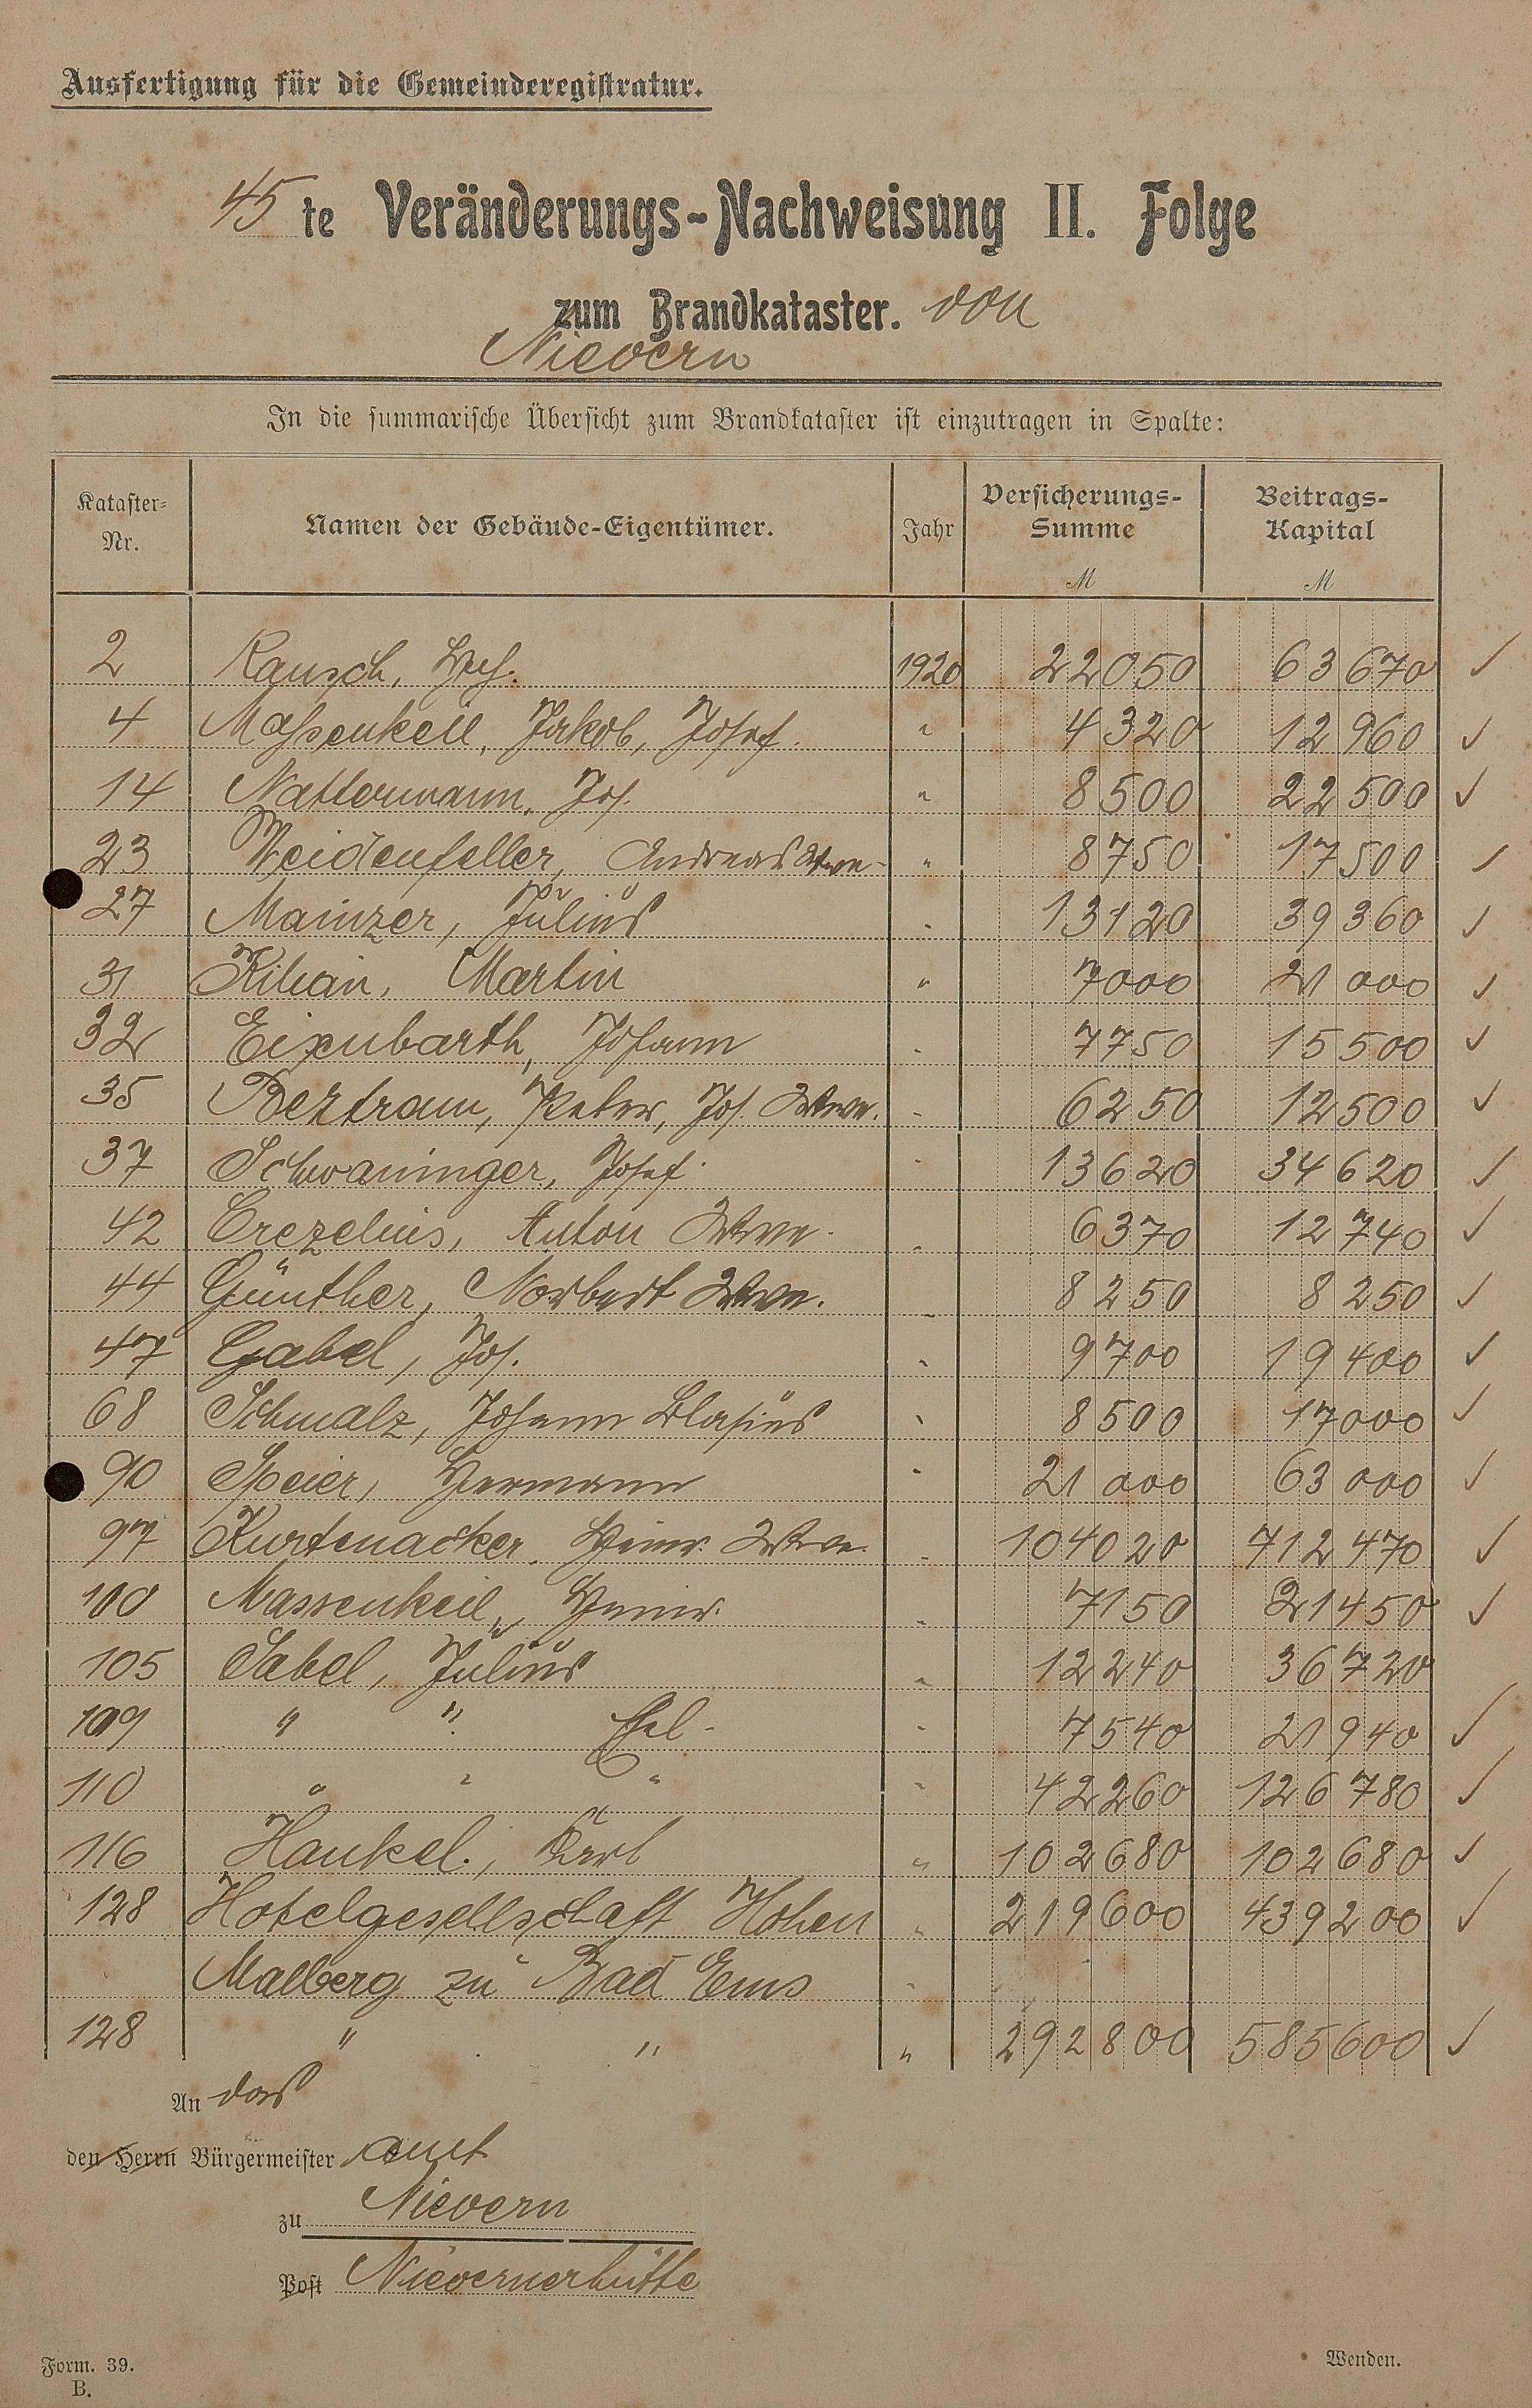 Ausfertigung für die Gemeinderegistratur.
45 te Veränderungs-Nachweisung II. Folge
zum Brandkataster. von
Nievern
In die summarische Übersicht zum Brandkataster ist einzutragen in Spalte:
Kataster-Nr. Namen der Gebäude-Eigentümer. Jahr Versicherungs-Summe M Beitrags-Kapital M
2 Rausch, 1920 22050 63670 ✓
4 Massenkeil, Jakob, Josef. " 4320 12960 ✓
14 Nattermann, Jos. " 8500 22500 ✓
23 Weidenfeller, Andreas Wwe " 8750 17500 ✓
27 Mainzer, Julius " 13120 39360 ✓
31 Kilian, Martin " 7000 21000 ✓
32 Eisenbarth, Johann " 7750 15500 ✓
35 Bertram, Peter, Jos. Wwe. " 6250 12500 ✓
37 Schwaninger, Josef " 13620 34620 ✓
42 Crezelius, Anton Wwe. " 6370 12740 ✓
44 Günther, Norbert Wwe. " 8250 8250 ✓
47 Gabel, Jos. " 9700 19400 ✓
68 Schmalz, Johann Blasius " 8500 17000 ✓
90 Speier, Hermann " 21000 63000 ✓
97 Kurtenacker, Heinr. Wwe. " 104020 712470 ✓
100 Massenkeil, Heinr. " 7150 21450 ✓
105 Sabel, Julius " 12240 36720
109 " " " 7540 21940 ✓
110 " " " " 42260 126780 ✓
116 Hankel., Karl " 102680 102680 ✓
128 Hotelgesellschaft Hohen " 219600 439200 ✓
Malberg zu Bad Ems "
128 " " " 292800 585600 ✓
An das
den Herrn Bürgermeister amt
zu Nievern
Post Nievernerhütte
Form. 39.
B.
Wenden.